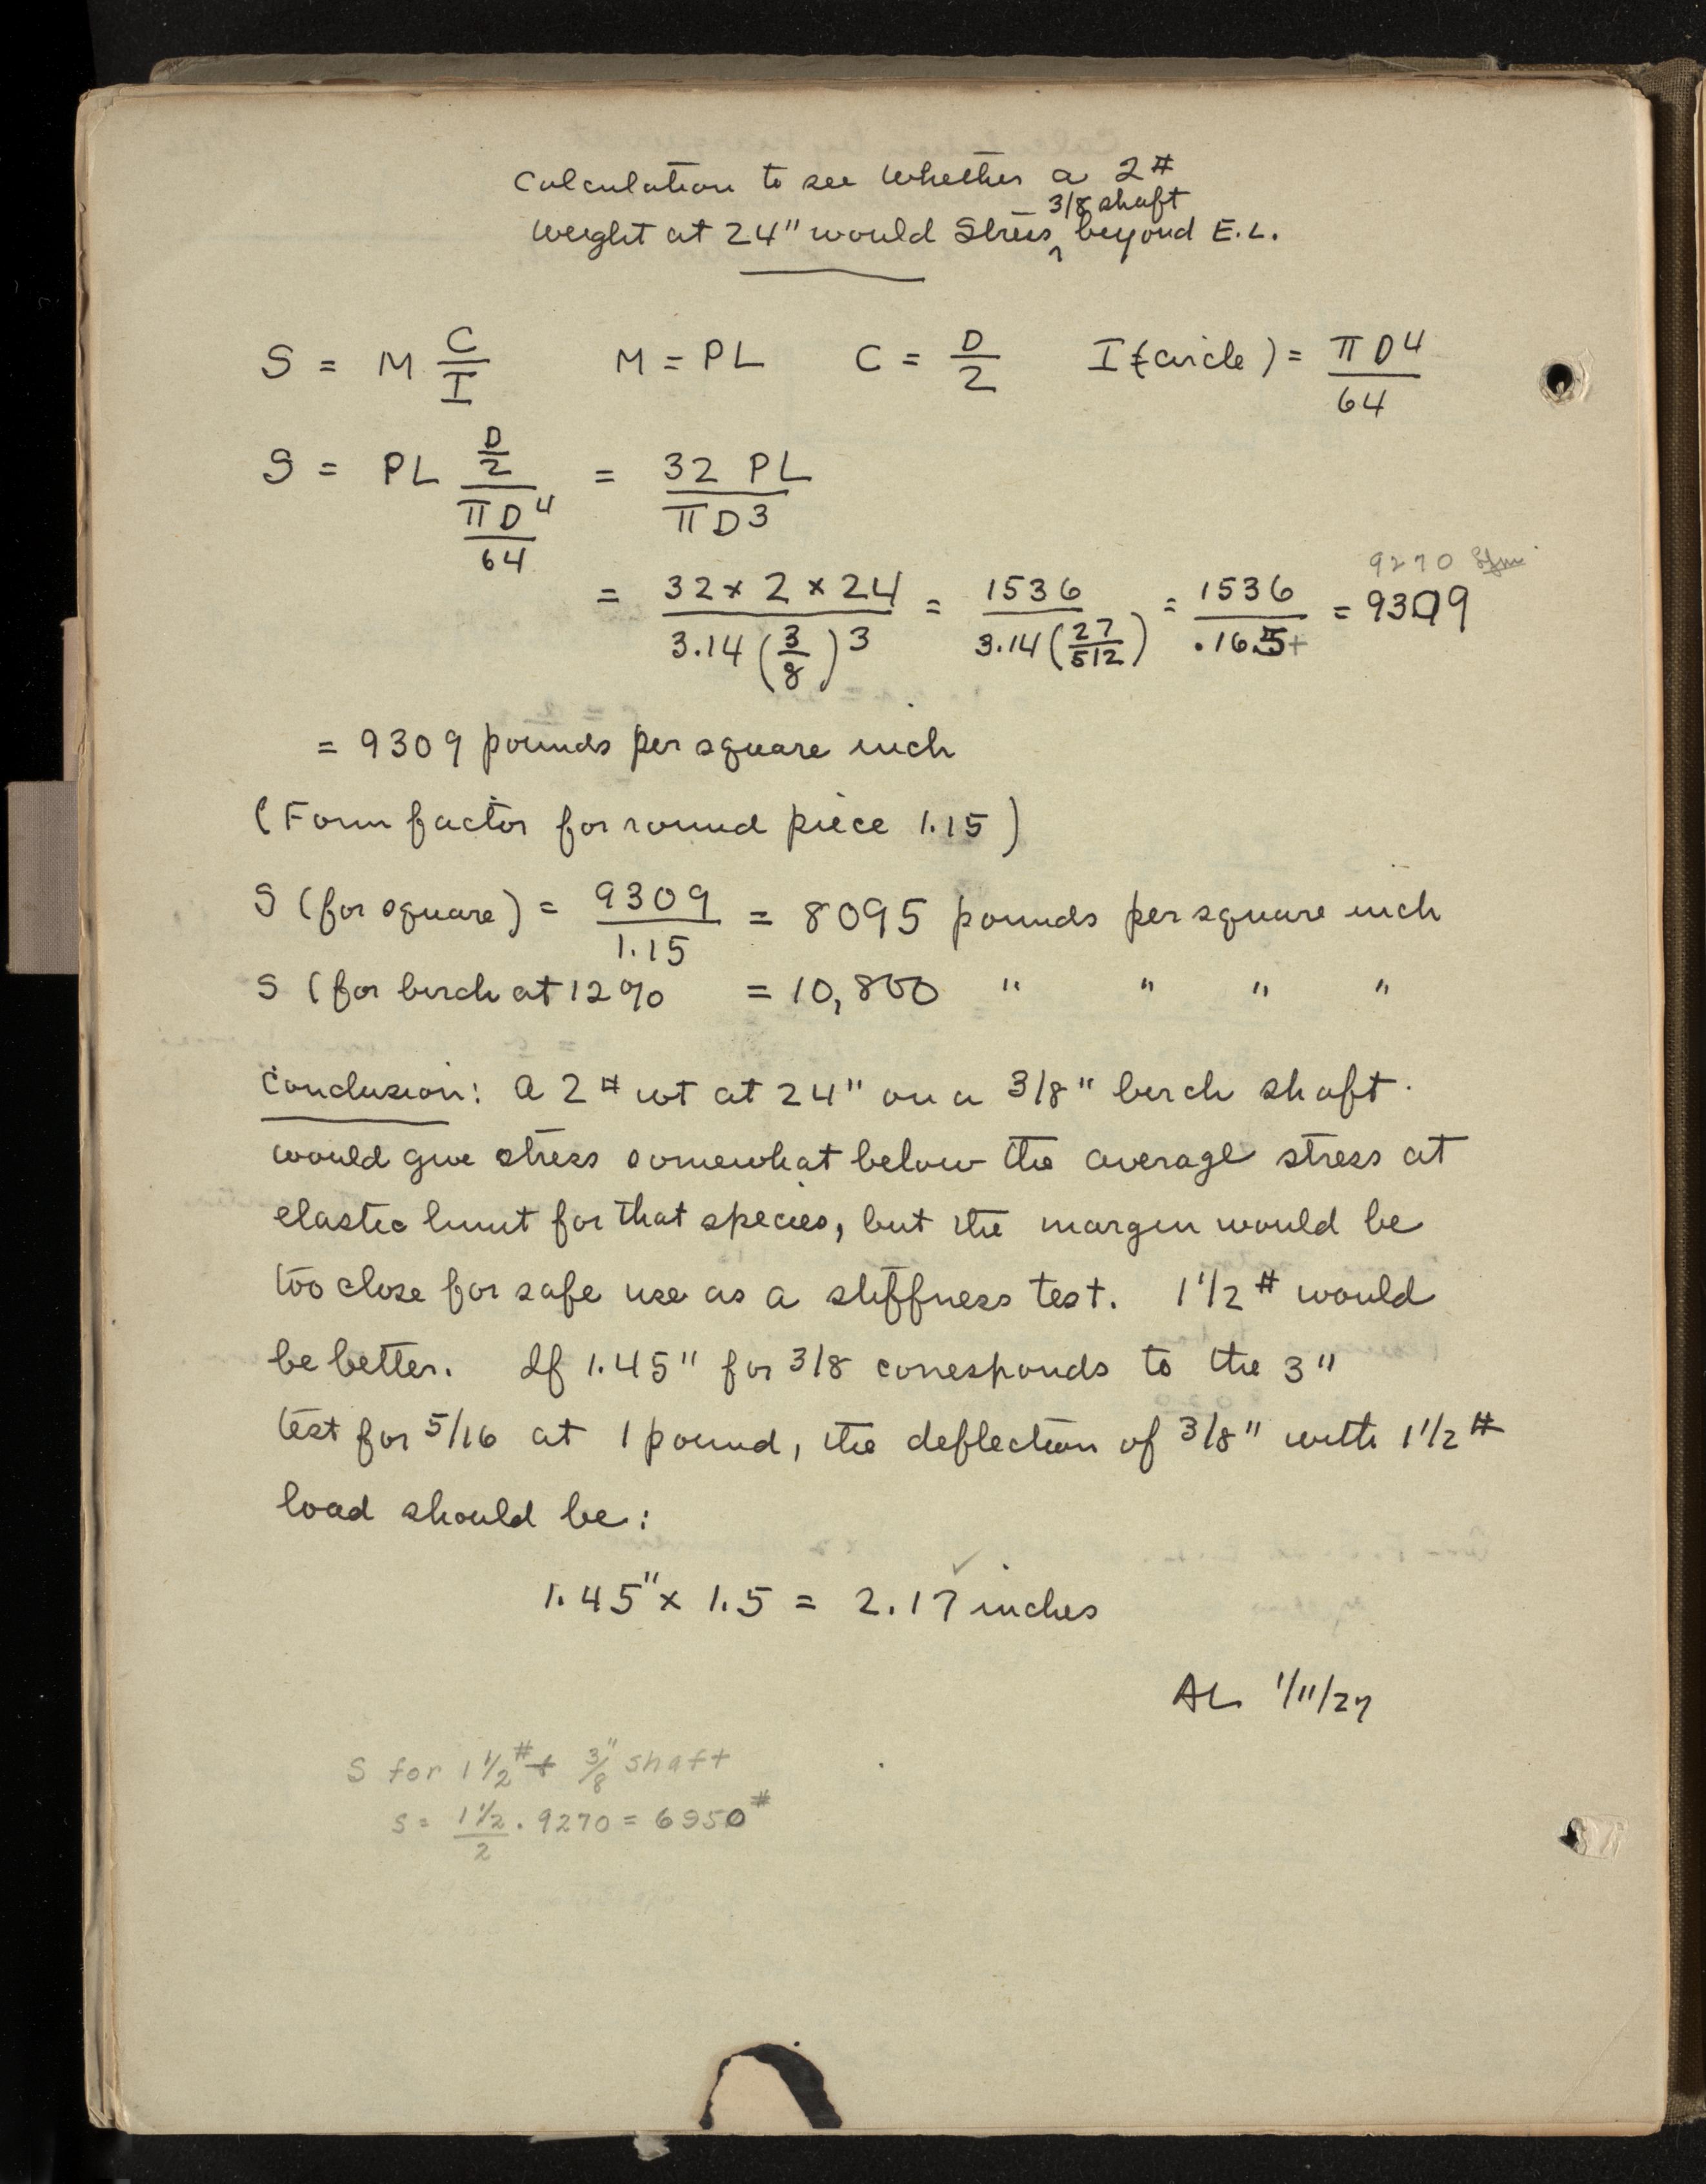 Calculation to see whether a 2#
weight at 24" would stress 3/8 shaft beyond E.L.
S = M C/I M = PL C = D/2 I (circle) = πD⁴/64
S = PL (D/2)/(πD⁴/64) = 32 PL/πD³
9270
= 32 x 2 x 24/3.14(3/8)³ = 1536/3.14(27/512) = 1536/.165+ = 9309
= 9309 pounds per square inch
(Form factor for round piece 1.15)
S (for square) = 9309/1.15 = 8095 pounds per square inch
S (for birch at 12% = 10,800 " " " "
Conclusion: A 2# wt at 24" on a 3/8" birch shaft
would give stress somewhat below the average stress at
elastic limit for that species, but the margin would be
too close for safe use as a stiffness test. 1 1/2# would
be better. If 1.45" for 3/8 corresponds to the 3"
test for 5/16 at 1 pound, the deflection of 3/8" with 1 1/2#
load should be:
1.45" x 1.5 = 2.17 inches
AL 1/11/27
S for 1 1/2# + 3/8" shaft
S = 1 1/2/2 . 9270 = 6950#